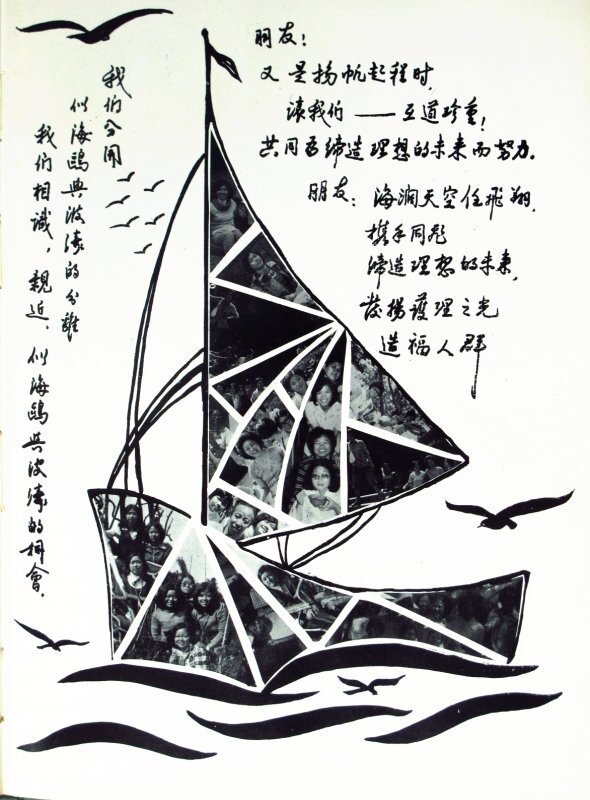 朋友:
又是揚帆起程时,
讓我们——互道珍重!
共同為締造理想的未來而努力.
朋友: 海濶天空任飛翔,
携手同
締造理想的未來,
發揚護理之光
造福人群
我们分開
似海鷗與波濤的分離
我们相識,親近,似海鷗與波濤的相會.